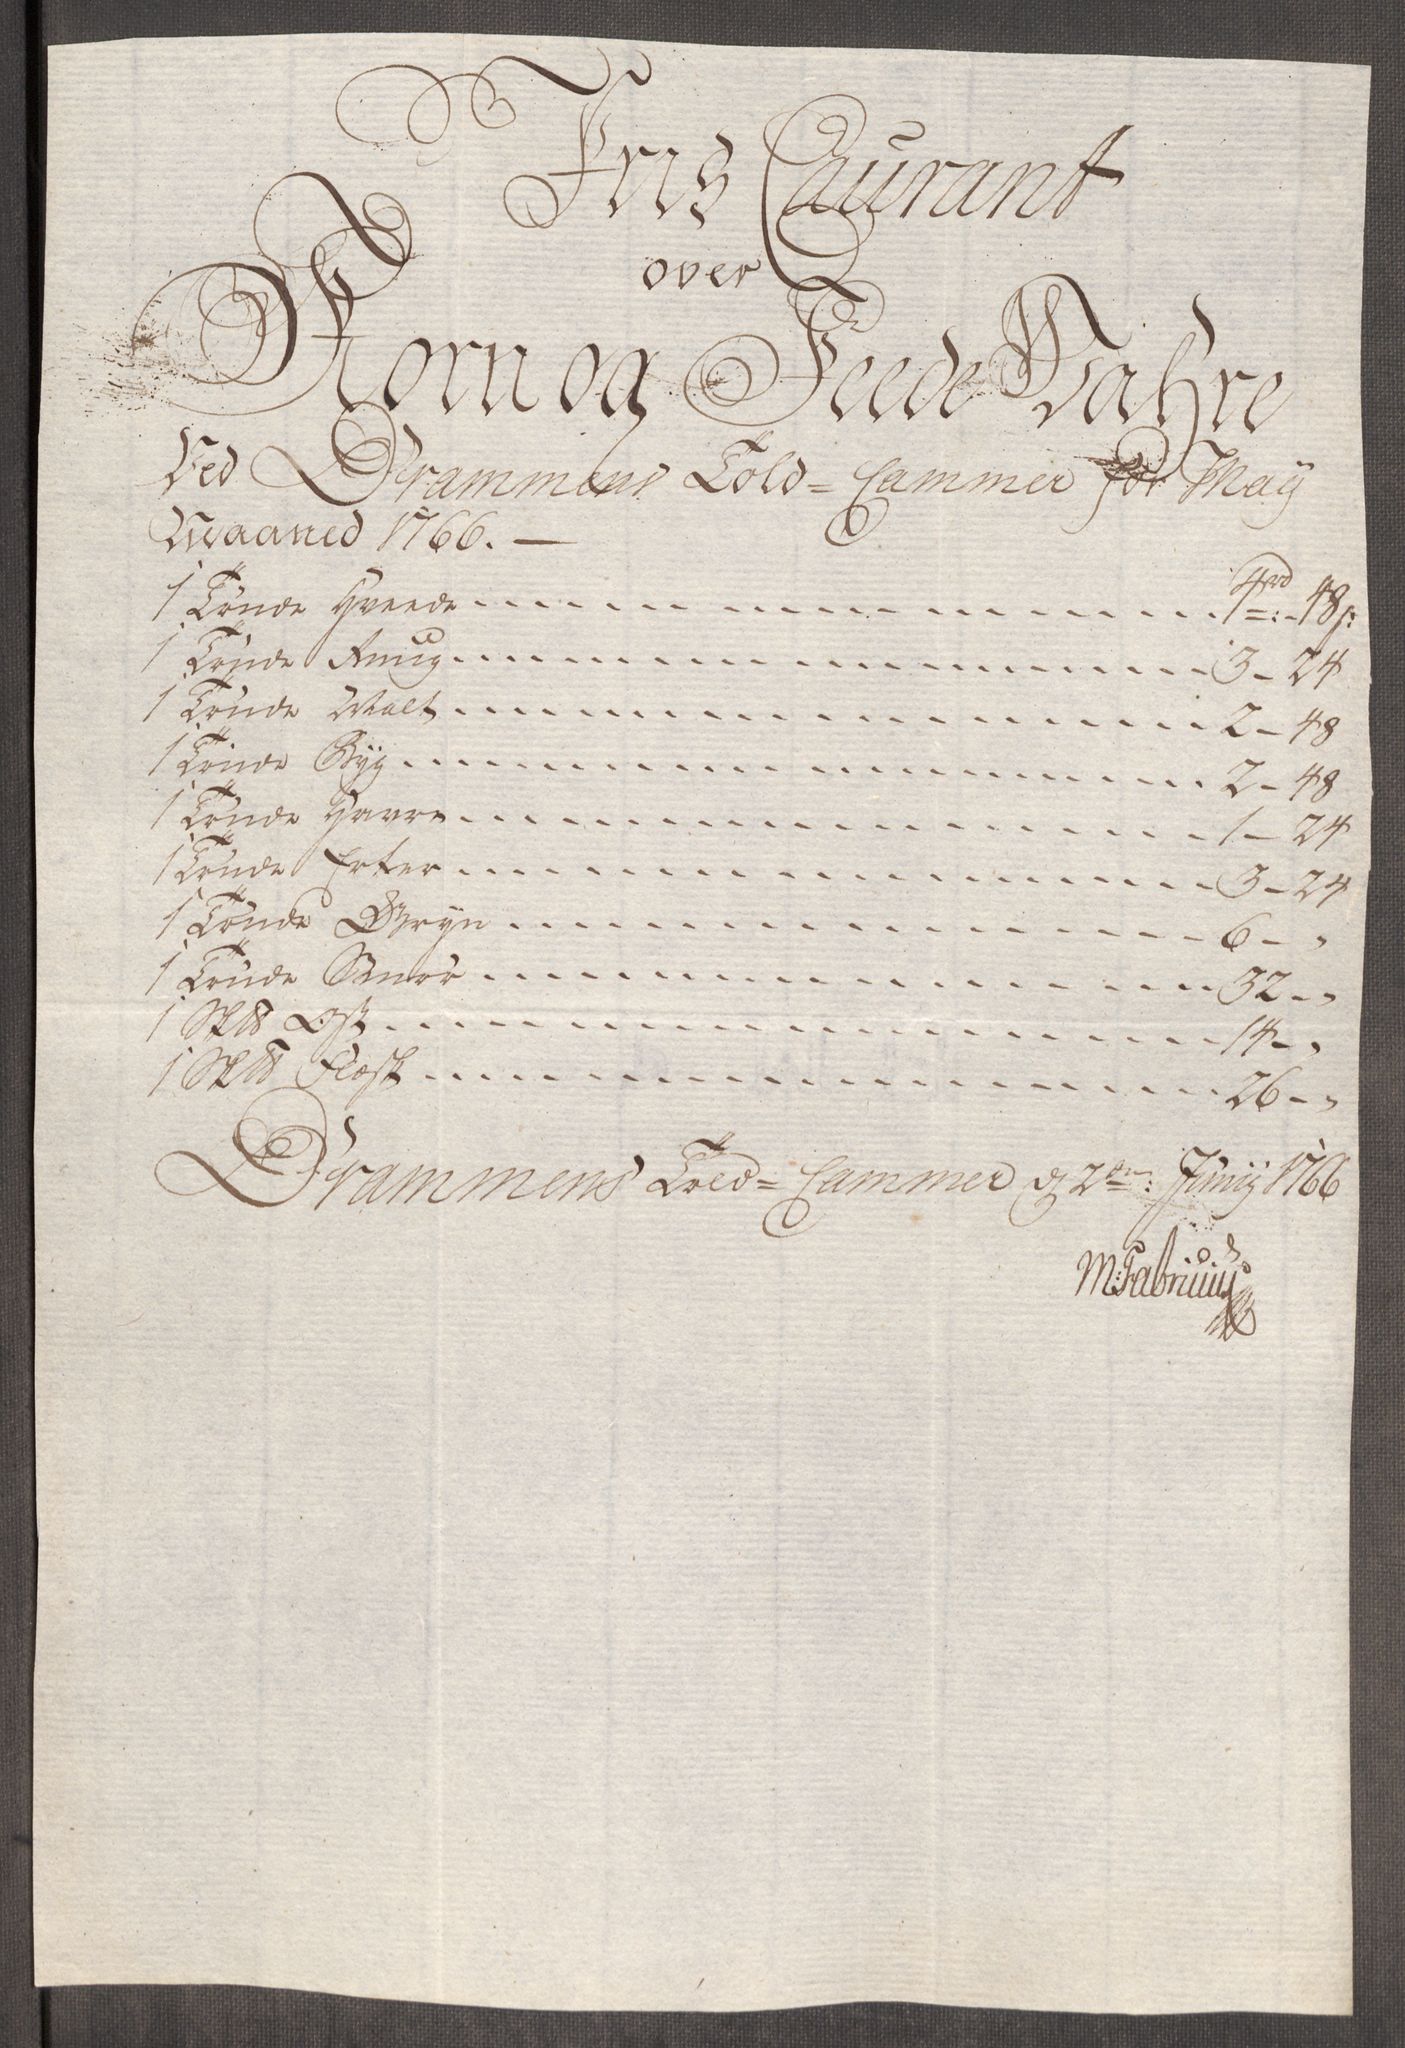 Pris Courant
over
Korn og Feede Vahre
Ved Drammens Told=Cammer for May
Maaned 1766. —
1 Tønde Hveede 4rd: - 48s:
1 Tønde Rrug 3 - 24
1 Tønde Malt 2 - 48
1 Tønde Byg 2 - 48
1 Tønde Havre 1 - 24
1 Tønde Erter 3 - 24
1 Tønde Gryn 6 - "
1 Tønde Smør 32 - "
1 Sk℔ Ost 14 - "
1 Sk℔ Flesk 26 - "
Drammens Told=Cammer d 2den: Junij 1766
M: Fabriciuss